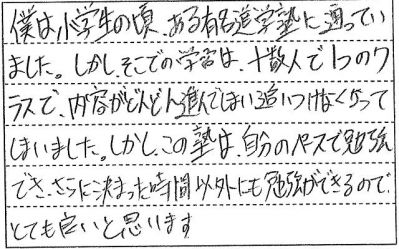 僕は小学生の頃、ある有名進学塾に通ってい
ました。しかしそこでの学習は、十数人で1つのク
ラスで、内容がどんどん進んでしまい追いつけなくなって
しまいました。しかし、この塾は、自分のペースで勉強
でき、さらに決まった時間以外にも勉強ができるので、
とても良いと思います